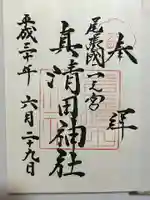 奉拝
尾張國一之宮
真清田神社
平成三十年六月二十九日